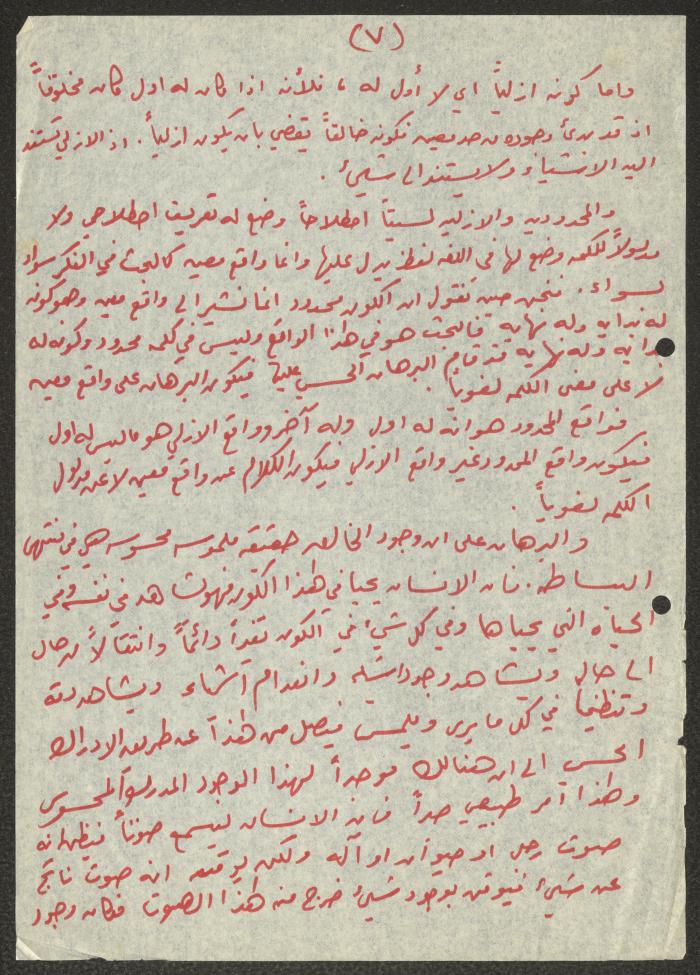 (٧)
واما كونه ازلياً اي لا أول له ، فلأنه اذا كان له اول كان مخلوقاً
اذ قد بدئ وجوده من حد معين فكونه خالقاً يقضي بان يكون ازلياً . اذ الازلي تستند
اليه الاشياء ولا يستند الى شيئ .
والمحدودية والازلية ليستا اصطلاحاً وضع له تعريف اصطلاحي ولا
مدلولاً لكلمة وضع لها في اللغة لفظ يدل عليها وانما واقع معين كالبحث في الفكر سواء
بسواء . فنحن حين نقول ان الكون محدود انما نشير الى واقع معين وهو كونه
له بداية وله نهاية فالبحث هو في هذا الواقع وليس في كلمة محدود وكونه له
بداية وله نهاية قد قام البرهان الحسي عليها فيكون البرهان على واقع معين
لا على معنى الكلمة لغوياً .
فواقع المحدود هو انه له اول وله آخر وواقع الازلي هو ما ليس له اول
فيكون واقع المحدود غير واقع الازلي فيكون الكلام عن واقع معين لا عن مدلول
الكلمة لغوياً .
والبرهان على ان وجود الخالق حقيقة ملموسة محسوسة هي في منتهى
البساطة . فان الانسان يحيا في هذا الكون فهو يشاهد في نفسه وفي
الحياة التي يحياها وفي كل شيئ في الكون تغيراً دائماً وانتقالاً من حال
الى حال ويشاهد وجود اشياء وانعدام اشياء ويشاهد دقة
وتنظيماً في كل ما يرى ويلمس فيصل من هذا عن طريق الادراك
الحسي الى ان هنالك موجداً لهذا الوجود المدرك المحسوس
وهذا أمر طبيعي جداً فان الانسان ليسمع صوتاً فيظن انه
صوت رجل او حيوان او آلة ولكن يوقن انه صوت ناتج
عن شيئ فيوقن بوجود شيئ خرج منه هذا الصوت فكان وجود